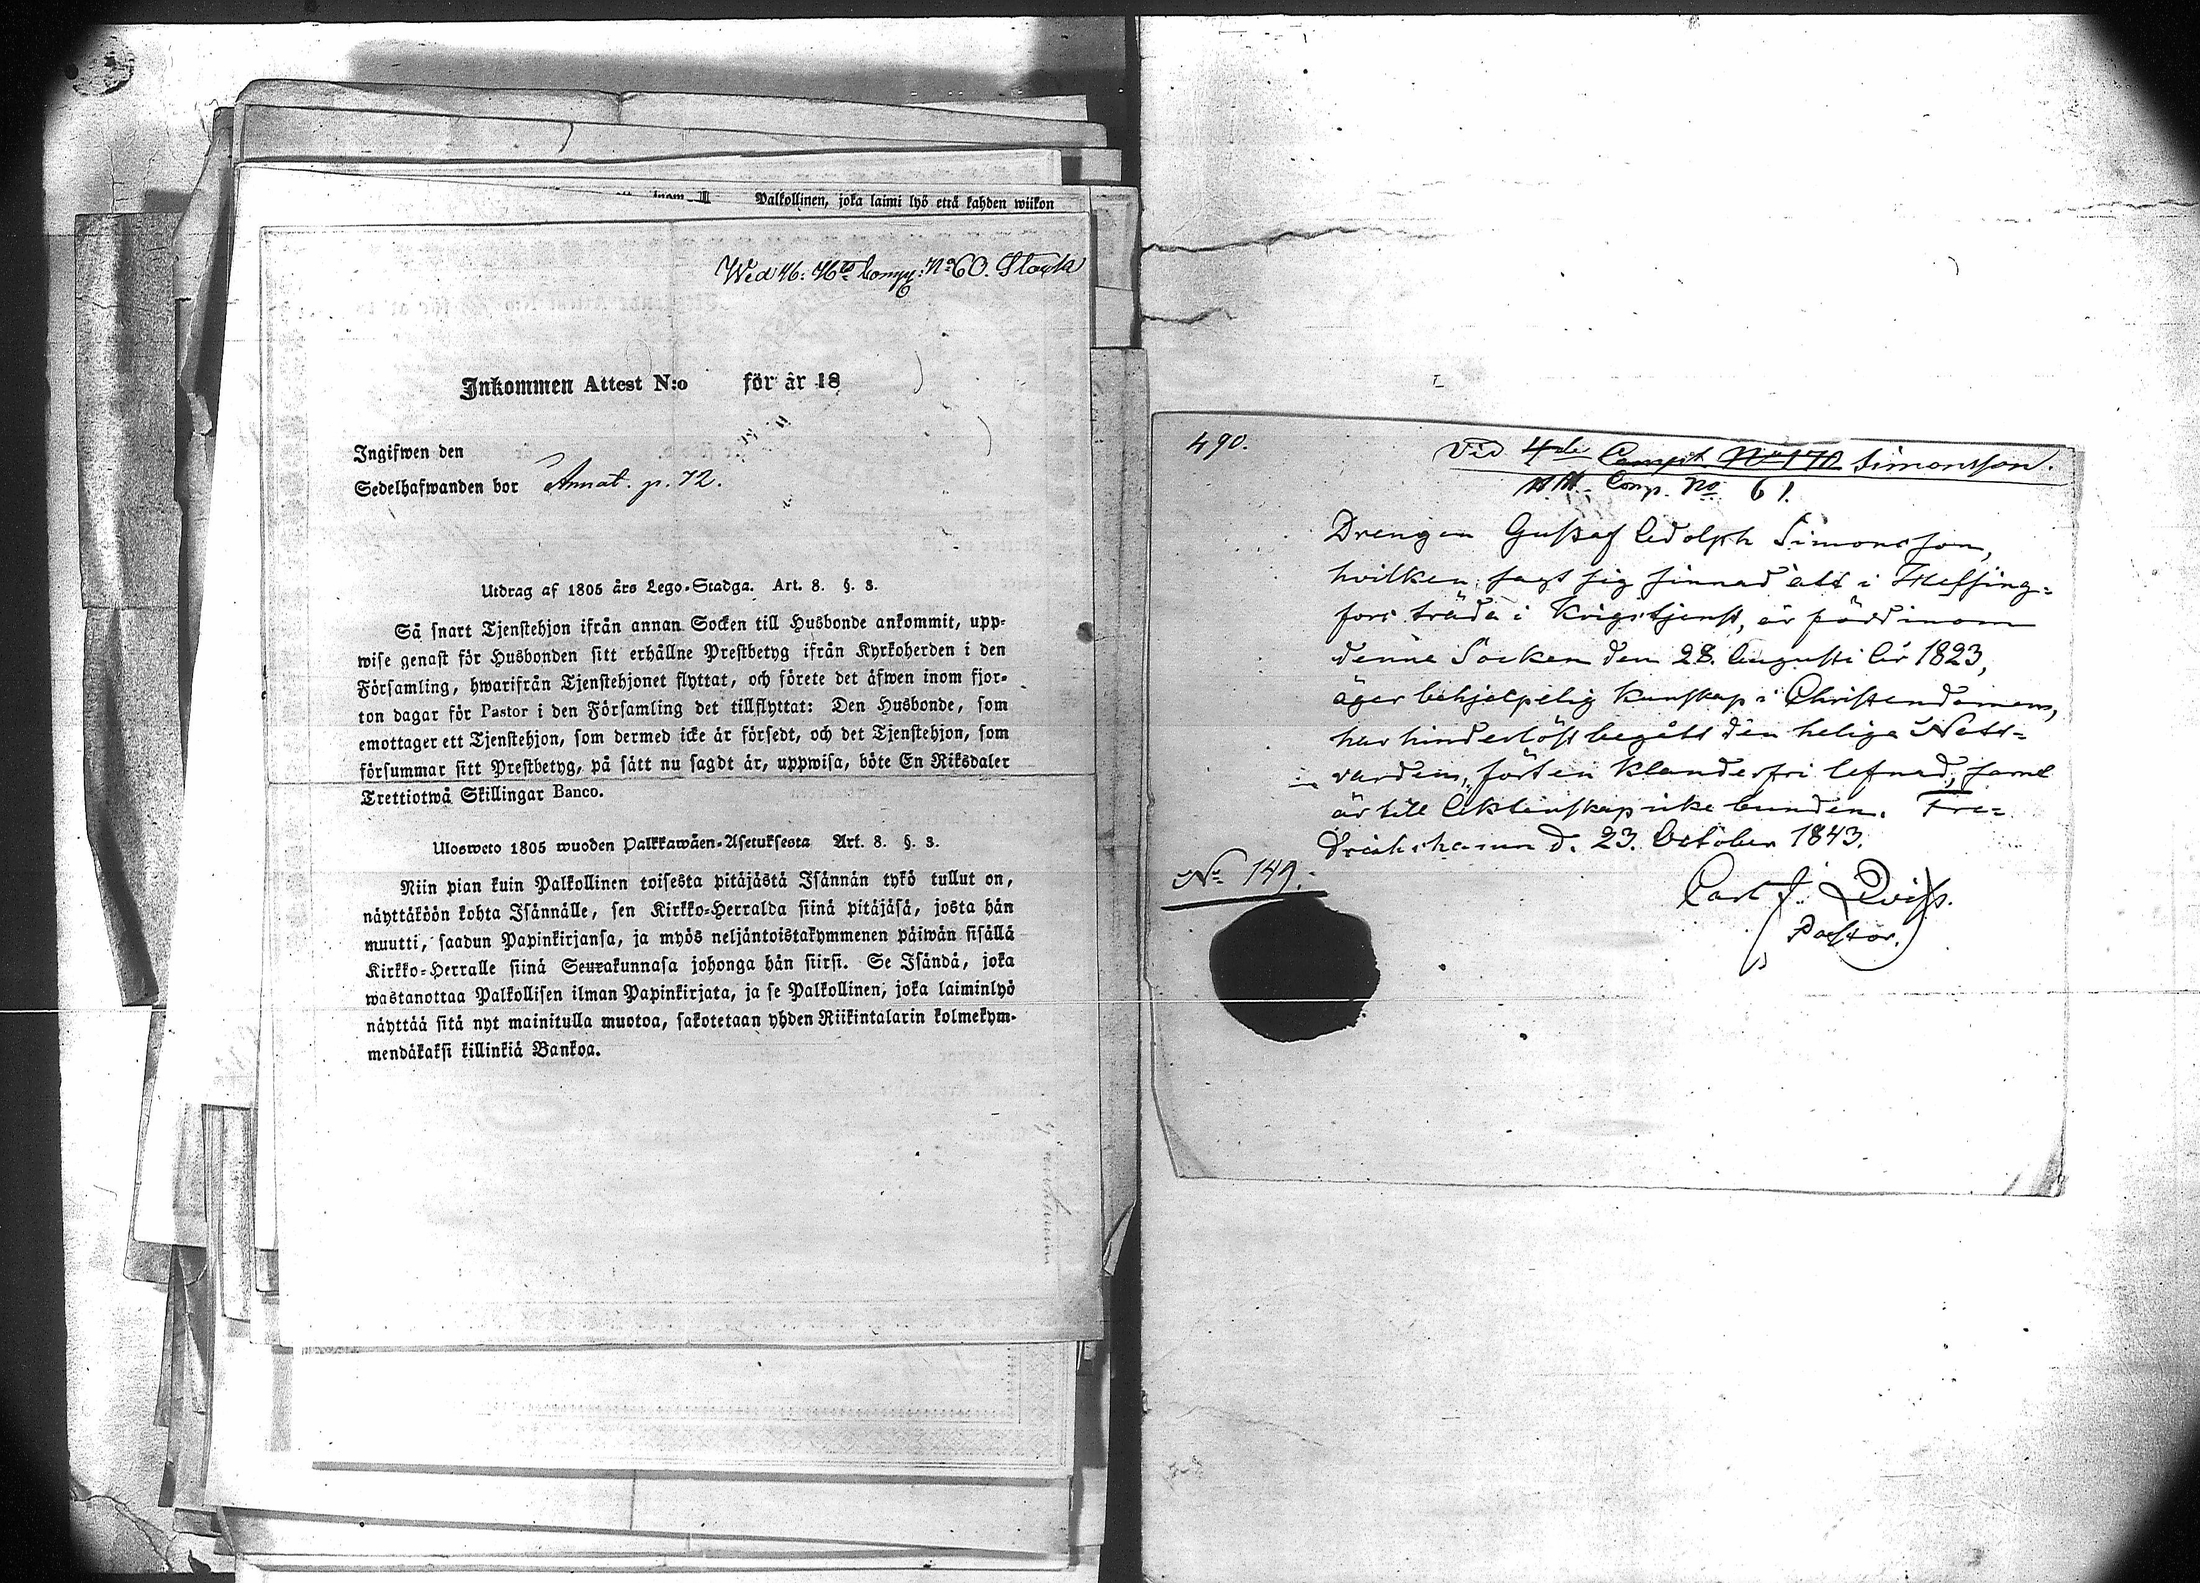 Palkollinen, joka laimi lyö että kahden wiikon
Wed H. Comp: No 60. Stark
Inkommen Attest N:o för år 18
Ingifwen den
Sedelhafwanden bor Annat. p. 72.
Utdrag af 1805 års Lego-Stadga. Art. 8. §. 3.
Så snart Tjenstehjon ifrån annan Socken till Husbonde ankommit, upp-
wise genast för Husbonden sitt erhållne Prestbetyg ifrån Kyrkoherden i den
Församling, hwarifrån Tjenstehjonet flyttat, och förete det äfwen inom fjor-
ton dagar för Pastor i den Församling det tillflyttat: Den Husbonde, som
emottager ett Tjenstehjon, som dermed icke är försedt, och det Tjenstehjon, som
försummar sitt Prestbetyg, på sätt nu sagdt är, uppwisa, böte En Riksdaler
Trettiotwå Skillingar Banco.
Ulosweto 1805 wuoden Palkkawäen-Asetuksesta Art. 8. §. 3.
Niin pian kuin Palkollinen toisesta pitäjästä Isännän tykö tullut on,
näyttäköön kohta Isännälle, sen Kirkko-Herralda siinä pitäjäsä, josta hän
muutti, saadun Papinkirjansa, ja myös neljäntoistakymmenen päiwän sisällä
Kirkko-Herralle siinä Seurakunnasa johonga hän siirsi. Se Isändä, joka
wastanottaa Palkollisen ilman Papinkirjata, ja se Palkollinen, joka laiminlyö
näyttää sitä nyt mainitulla muotoa, sakotetaan yhden Riikintalarin kolmekym-
mendäkaksi killinkiä Bankoa.
490.
Vid 4de Comp. No 170 Simonsson.
Comp. No 61.
Drengen Gustaf Adolph Simonsson,
hvilken sagt sig sinnad att i Helsing-
fors träda i Krigstjenst, är född inom
denne Socken den 28. Augusti år 1823,
äger behjelpelig kunskap i Christendomen,
har hinderlöst begått den heliga Natt-
varden, fört en klanderfri lefnad, samt
är till Äktenskap icke bunden. Fre-
drichshamn d. 23. October 1843.
No 149.
Carl J. Qvist.
Pastor.